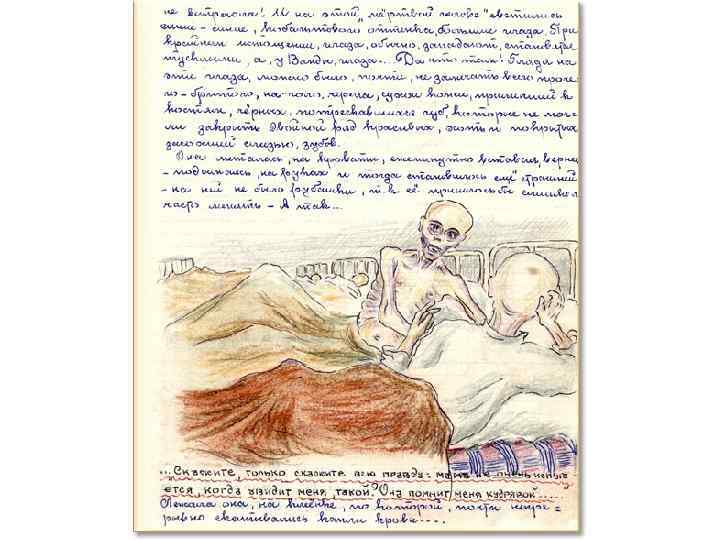 не встречала! И на этой „мёртвой голове" светились
сине-синие, кобальтового оттенка, большие глаза. При
крайнем истощении, глаза, обычно, западают, становятся
тусклыми, а, у Ванды, глаза... Да что там! Глядя на
эти глаза, можно было, почти, не замечать всего проче-
го – бритого, на-голо, черепа, сухой кожи, прилипшей к
костям, чёрных, потрескавшихся губ, которые не мог-
ли закрыть двойной ряд красивых, опять и покрытых
засохшей слизью, зубов.
Она металась, на кровати, ежеминутно вставая, вернее
– поднимаясь, на руках и тогда становилось ещё страшней
– на ней не было рубашки, т.к. её пришлось бы слишком
часто менять – А так...
... Скажите, только скажите всю правду: мама не очень испуга-
ется, когда увидит меня, такой? Она помнит, меня кудрявой.....
Лежала она, на клеёнке, по которой, почти непре=
рывно скатывались капли крови....